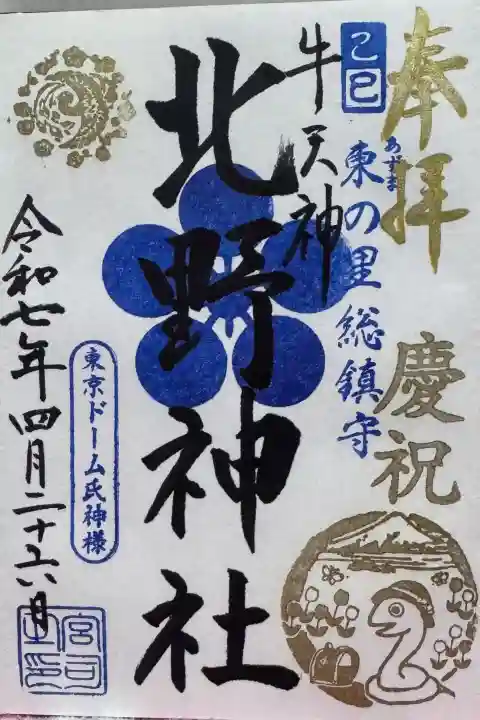 奉拝
慶祝
乙巳
東の里総鎮守
あずま
牛天神
北野神社
東京ドーム氏神様
令和七年四月二十六日
宮司之印